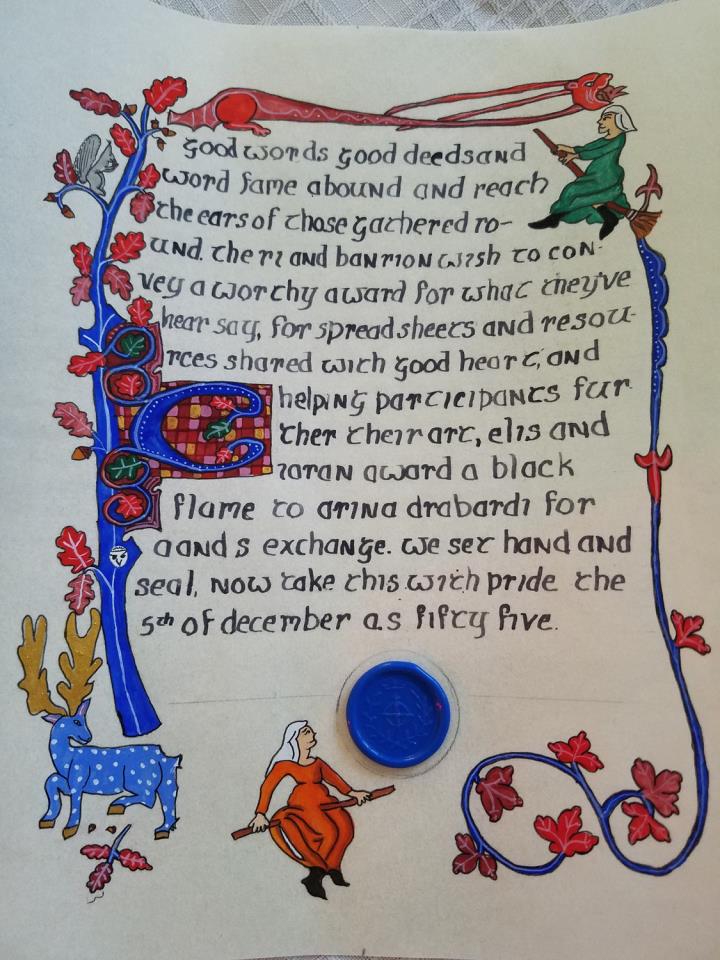 good words good deeds and
word fame abound and reach
the ears of those gathered ro-
und. the ri and banrion wish to con-
vey a worthy award for what they've
hear say, for spreadsheets and resou-
rces shared with good heart, and
helping participants fur
ther their art, elis and
zoran award a black
flame to arina drabardi for
a and s exchange. we set hand and
seal, now take this with pride the
5th of december as fifty five.